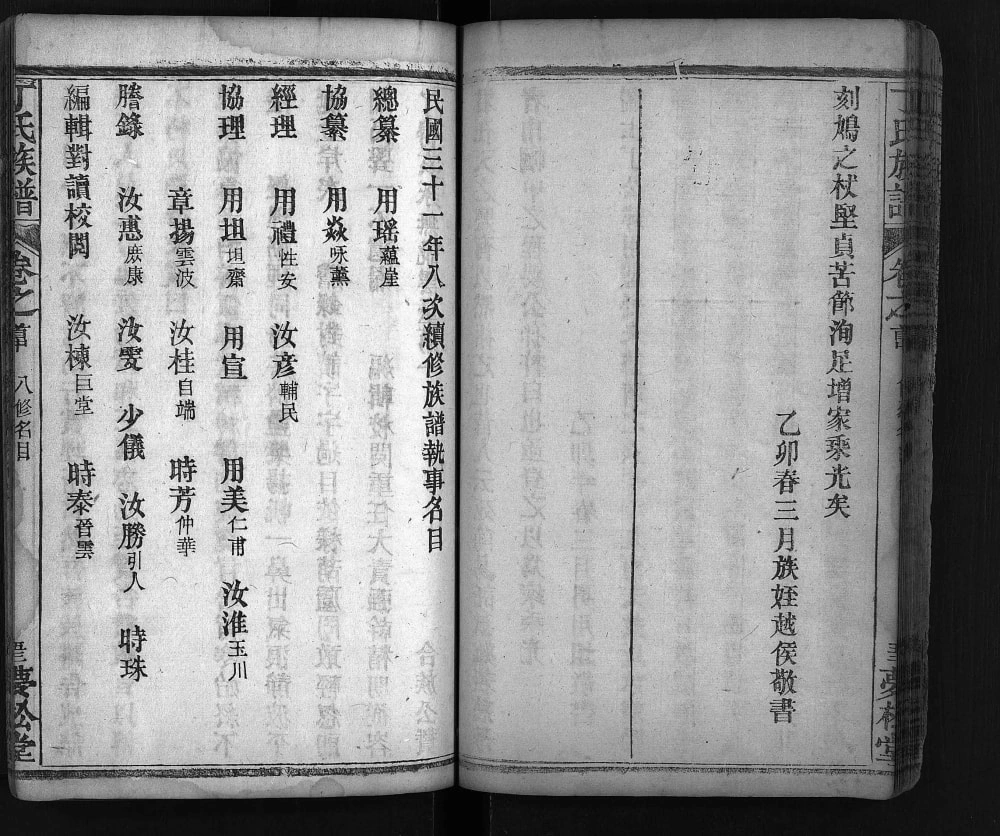 刻鳩之杖堅貞苦節洵足增家乘光矣
乙卯春三月族姪越侯敬書
民國三十一年八次續修族譜執事名目
總纂 用瑶蘊崖
協纂 用焱咏薰
經理 用禮性安 汝彦輔民
協理 用坦坦齋 用宣 用美仁甫 汝淮玉川
章揚雲波 汝桂自端 時芳仲華
謄錄 汝惠庶康 汝雯 少儀 汝勝引人 時珠
編輯對讀校閱 汝棟巨堂 時泰晉雲
丁氏族譜 卷之首 八修名目 夢松堂